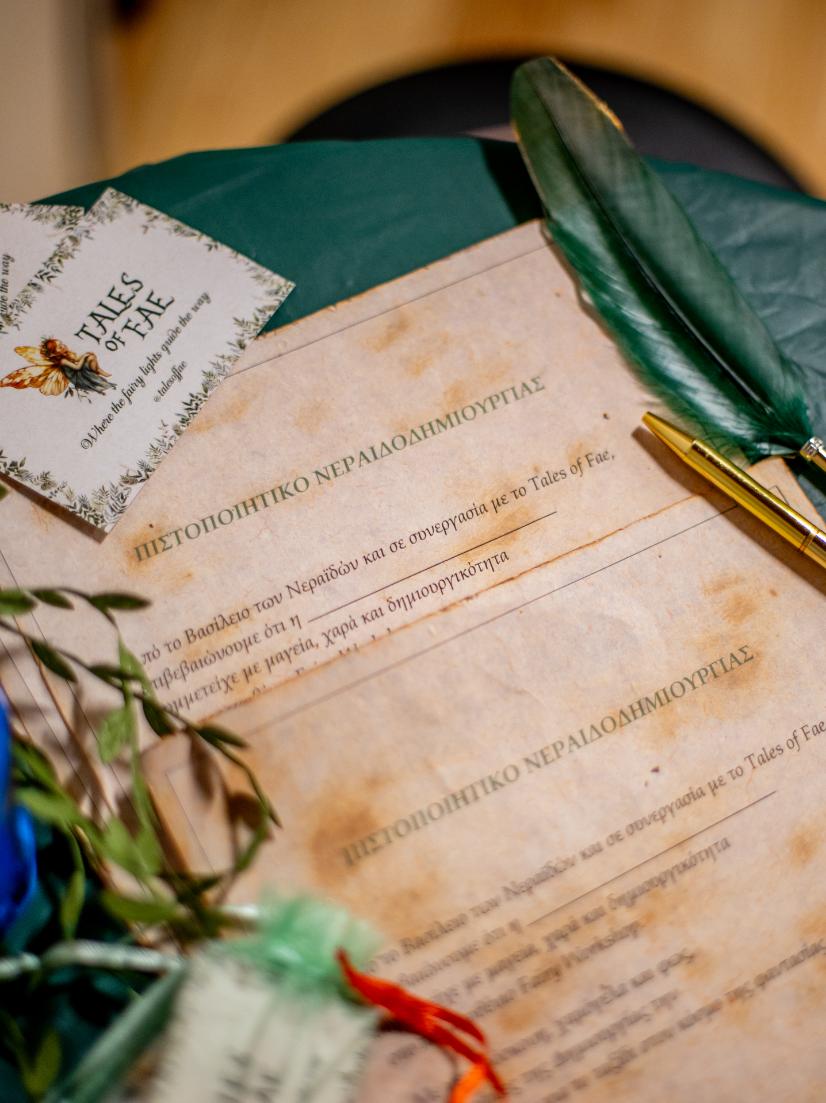 uide the way
TALES
OF FAE
Where the fairy lights guide the way
@talesoffae
ΠΙΣΤΟΠΟΙΗΤΙΚΟ ΝΕΡΑΙΔΟΔΗΜΙΟΥΡΓΙΑΣ
πό το Βασίλειο των Νεραϊδών και σε συνεργασία με το Tales of Fae,
τιβεβαιώνουμε ότι η
μμετείχε με μαγεία, χαρά και δημιουργικότητα
ΠΙΣΤΟΠΟΙΗΤΙΚΟ ΝΕΡΑΙΔΟΔΗΜΙΟΥΡΓΙΑΣ
το Βασίλειο των Νεραϊδών και σε συνεργασία με το Tales of Fae
βαιώνουμε ότι η
με μαγεία, χαρά και δημιουργικότητα
Fairy Workshop.
και φως,
της δημιουργίας της
το ταξίδι στον κόσμο της φαντασίας